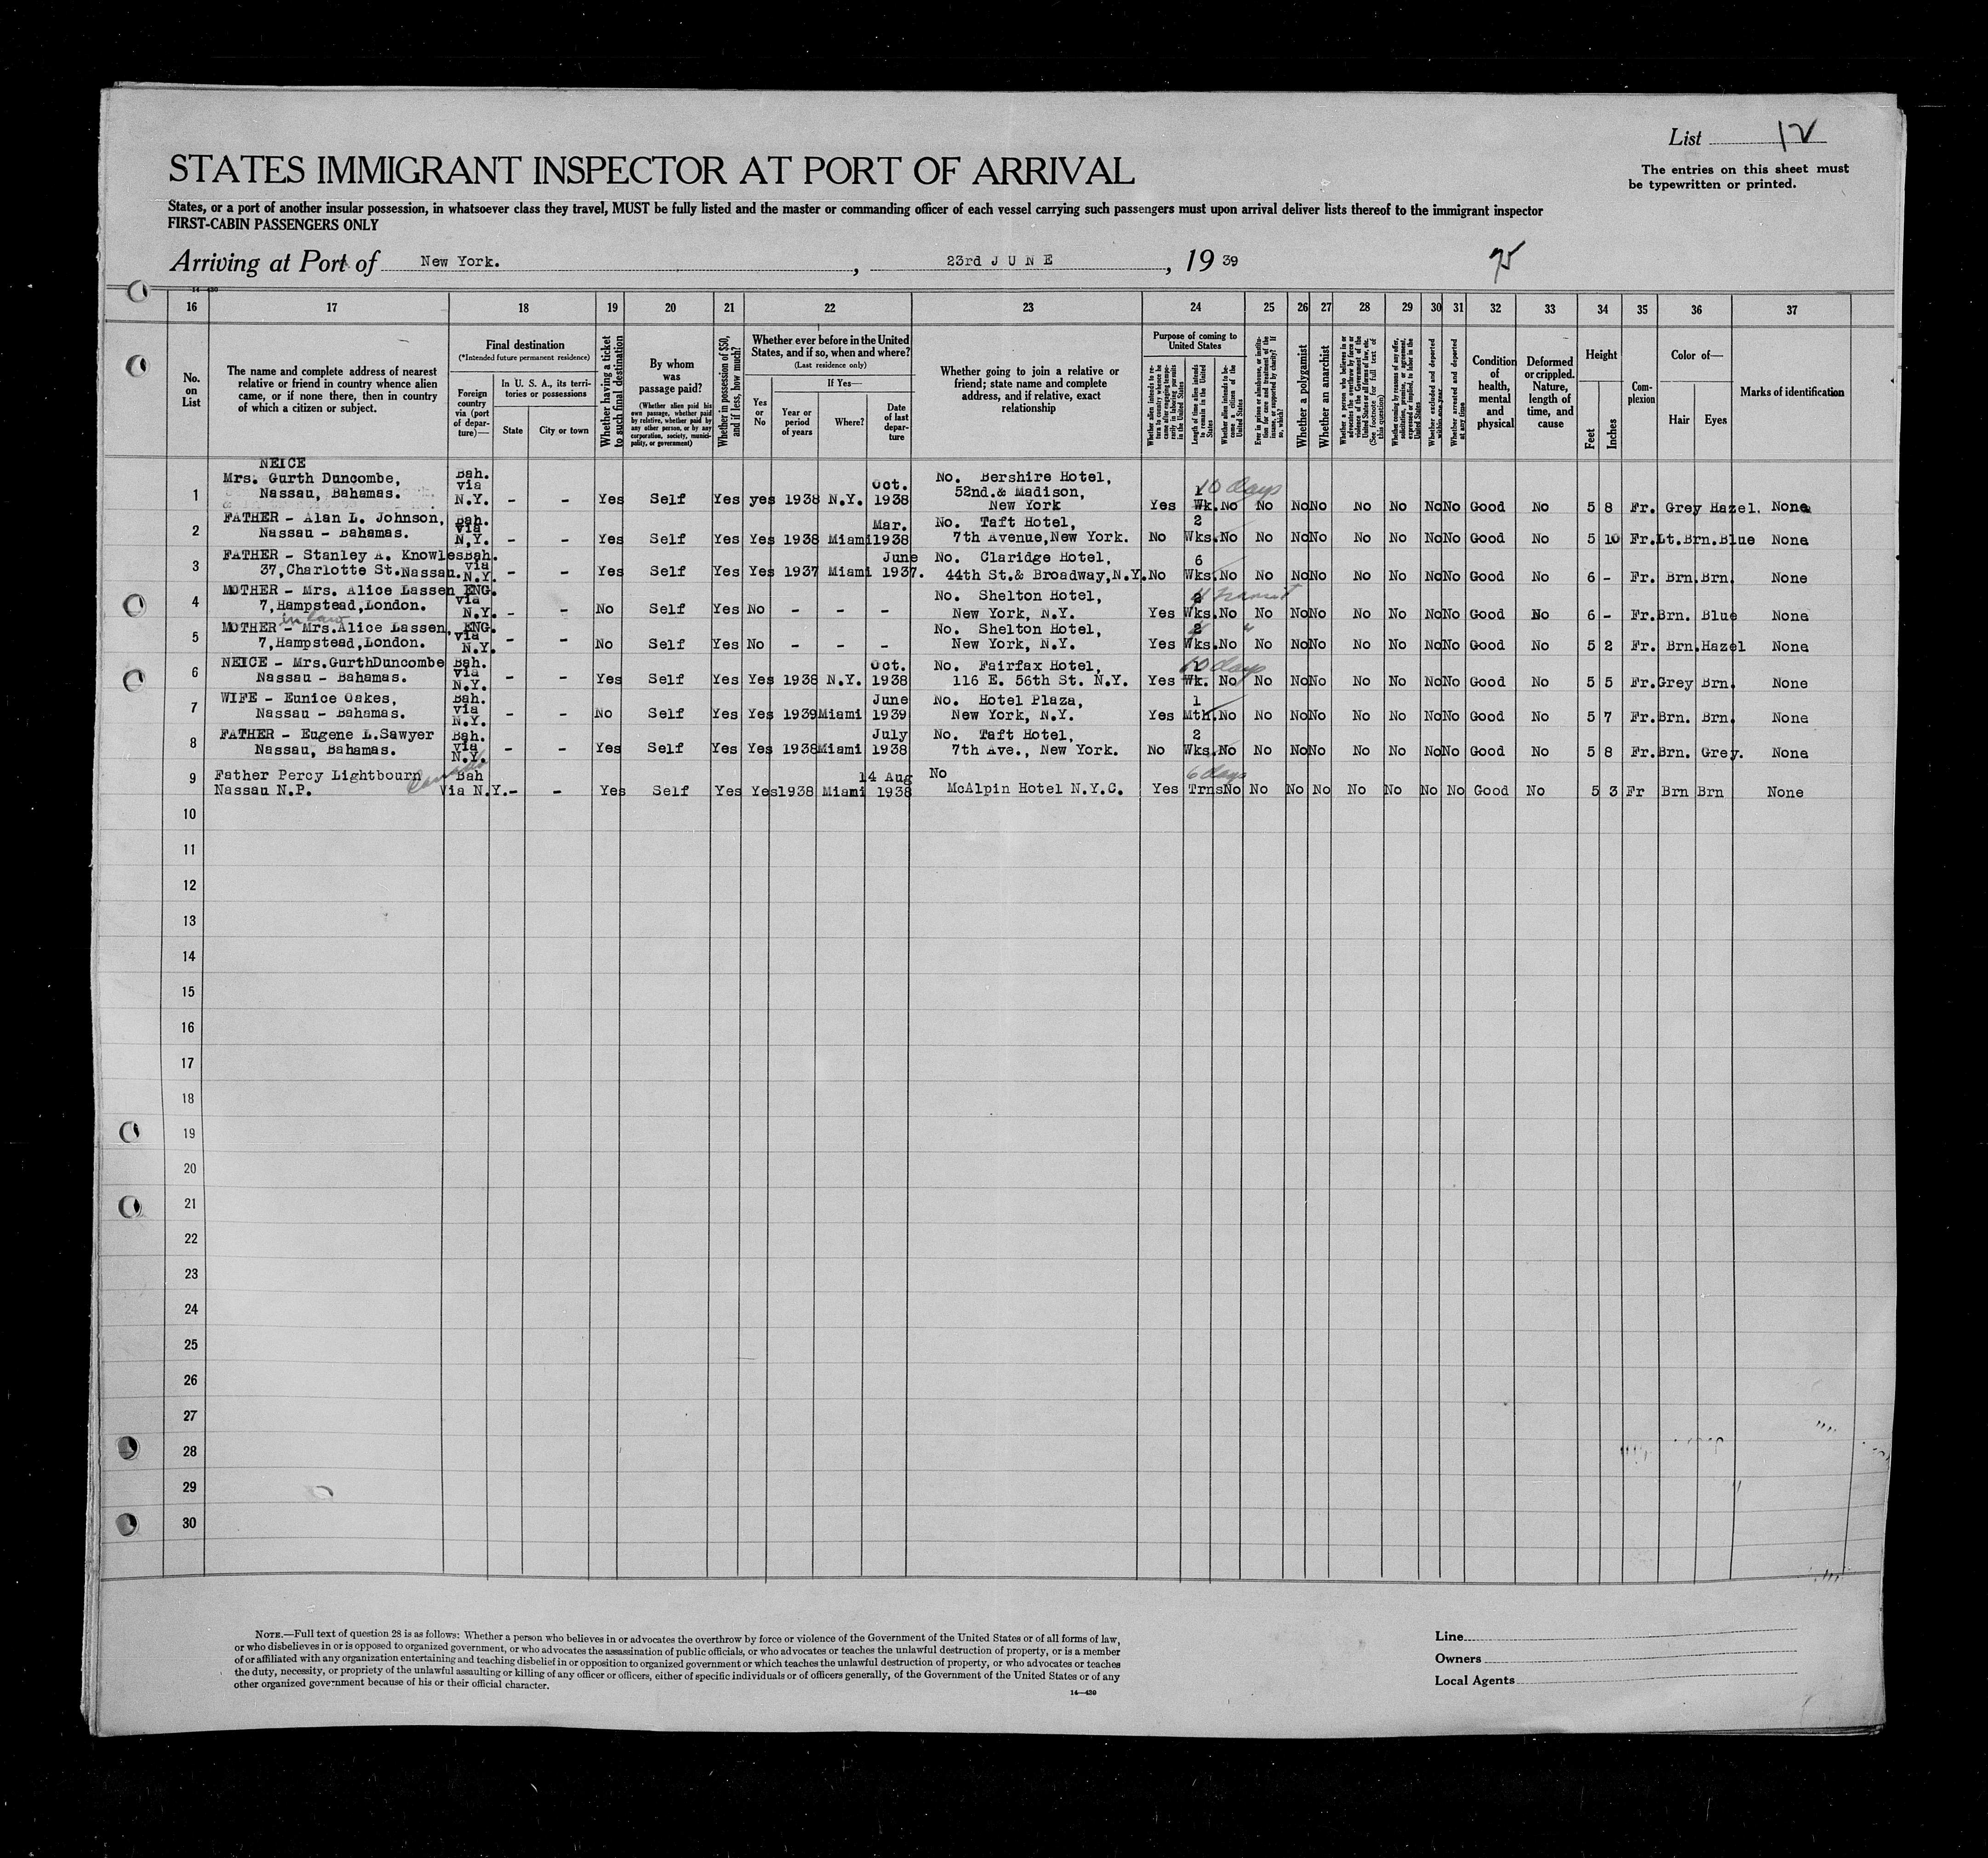 List 12
The entries on this sheet must
be typewritten or printed.
STATES IMMIGRANT INSPECTOR AT PORT OF ARRIVAL
States, or a port of another insular possession, in whatsoever class they travel, MUST be fully listed and the master or commanding officer of each vessel carrying such passengers must upon arrival deliver lists thereof to the immigrant inspector
FIRST-CABIN PASSENGERS ONLY
Arriving at Port of New York. , 23rd J U N E , 19 39
16 17 18 19 20 21 22 23 24 25 26 27 28 29 30 31 32 33 34 35 36 37
No.
on
List
The name and complete address of nearest
relative or friend in country whence alien
came, or if none there, then in country
of which a citizen or subject.
Final destination
(*Intended future permanent residence)
Foreign
country
via (port
of depar-
ture)—
In U. S. A., its terri-
tories or possessions
State
City or town
Whether having a ticket
to such final destination
By whom
was
passage paid?
(Whether alien paid his
own passage, whether paid
by relative, whether paid by
any other person, or by any
corporation, society, munici-
pality, or government)
Whether in possession of $50,
and if less, how much?
Whether ever before in the United
States, and if so, when and where?
(Last residence only)
Yes
or
No
If Yes—
Year or
period
of years
Where?
Date
of last
depar-
ture
Whether going to join a relative or
friend; state name and complete
address, and if relative, exact
relationship
Purpose of coming to
United States
Whether alien intends to re-
turn to country whence he
came after engaging tempo-
rarily in laboring pursuits
in the United States
Length of time alien intends
to remain in the United
States
Whether alien intends to be-
come a citizen of the
United States
Ever in prison or almshouse, or institu-
tion for care and treatment of the
insane, or supported by charity? If
so, which?
Whether a polygamist
Whether an anarchist
Whether a person who believes in or
advocates the overthrow by force or
violence of the Government of the
United States or all forms of law, etc.
(See footnote for full text of
this question)
Whether coming by reasons of any offer,
solicitation, promise, or agreement,
expressed or implied, to labor in the
United States
Whether excluded and deported
within one year
Whether arrested and deported
at any time
Condition
of
health,
mental
and
physical
Deformed
or crippled.
Nature,
length of
time, and
cause
Height
Feet
Inches
Com-
plexion
Color of—
Hair
Eyes
Marks of identification
NEICE
1 Mrs. Gurth Duncombe, Bah.
Nassau, Bahamas. via N.Y. - - Yes Self Yes yes 1938 N.Y. Oct. 1938 No. Bershire Hotel,
52nd.& Madison,
New York Yes 1 Wk. 10 days No No No No No No No No Good No 5 8 Fr. Grey Hazel. None
2 FATHER - Alan L. Johnson, Bah.
Nassau - Bahamas. via N.Y. - - Yes Self Yes Yes 1938 Miami Mar. 1938 No. Taft Hotel,
7th Avenue,New York. No 2 Wks. No No No No No No No No Good No 5 10 Fr. Lt.Brn. Blue None
3 FATHER - Stanley A. Knowles Bah.
37,Charlotte St.Nassau. via N.Y. - - Yes Self Yes Yes 1937 Miami June 1937. No. Claridge Hotel,
44th St.& Broadway,N.Y. No 6 Wks. No No No No No No No No Good No 6 - Fr. Brn. Brn. None
4 MOTHER - Mrs. Alice Lassen ENG.
7,Hampstead,London. via N.Y. - - No Self Yes No - - - No. Shelton Hotel,
New York, N.Y. Yes 2 Wks. No No No No No No No No Good No 6 - Fr. Brn. Blue None
in law
5 MOTHER - Mrs.Alice Lassen, ENG.
7,Hampstead,London. via N.Y. - - No Self Yes No - - - No. Shelton Hotel,
New York, N.Y. Yes 2 Wks. " No No No No No No No No Good No 5 2 Fr. Brn. Hazel None
6 NEICE - Mrs.GurthDuncombe Bah.
Nassau - Bahamas. via N.Y. - - Yes Self Yes Yes 1938 N.Y. Oct. 1938 No. Fairfax Hotel,
116 E. 56th St. N.Y. Yes 1 Wk. 10 days No No No No No No No No Good No 5 5 Fr. Grey Brn. None
7 WIFE - Eunice Oakes, Bah.
Nassau - Bahamas. via N.Y. - - No Self Yes Yes 1939 Miami June 1939 No. Hotel Plaza,
New York, N.Y. Yes 1 Mth. No No No No No No No No Good No 5 7 Fr. Brn. Brn. None
8 FATHER - Eugene L.Sawyer Bah.
Nassau, Bahamas. via N.Y. - - Yes Self Yes Yes 1938 Miami July 1938 No. Taft Hotel,
7th Ave., New York. No 2 Wks. No No No No No No No No Good No 5 8 Fr. Brn. Grey. None
9 Father Percy Lightbourn Canada Bah
Nassau N.P. Via N.Y. - - Yes Self Yes Yes 1938 Miami 14 Aug 1938 No
McAlpin Hotel N.Y.C. Yes 6 days Trns No No No No No No No No Good No 5 3 Fr Brn Brn None
10
11
12
13
14
15
16
17
18
19
20
21
22
23
24
25
26
27
28
29
30
NOTE.—Full text of question 28 is as follows: Whether a person who believes in or advocates the overthrow by force or violence of the Government of the United States or of all forms of law,
or who disbelieves in or is opposed to organized government, or who advocates the assassination of public officials, or who advocates or teaches the unlawful destruction of property, or is a member
of or affiliated with any organization entertaining and teaching disbelief in or opposition to organized government or which teaches the unlawful destruction of property, or who advocates or teaches
the duty, necessity, or propriety of the unlawful assaulting or killing of any officer or officers, either of specific individuals or of officers generally, of the Government of the United States or of any
other organized government because of his or their official character.
14—430
Line
Owners
Local Agents